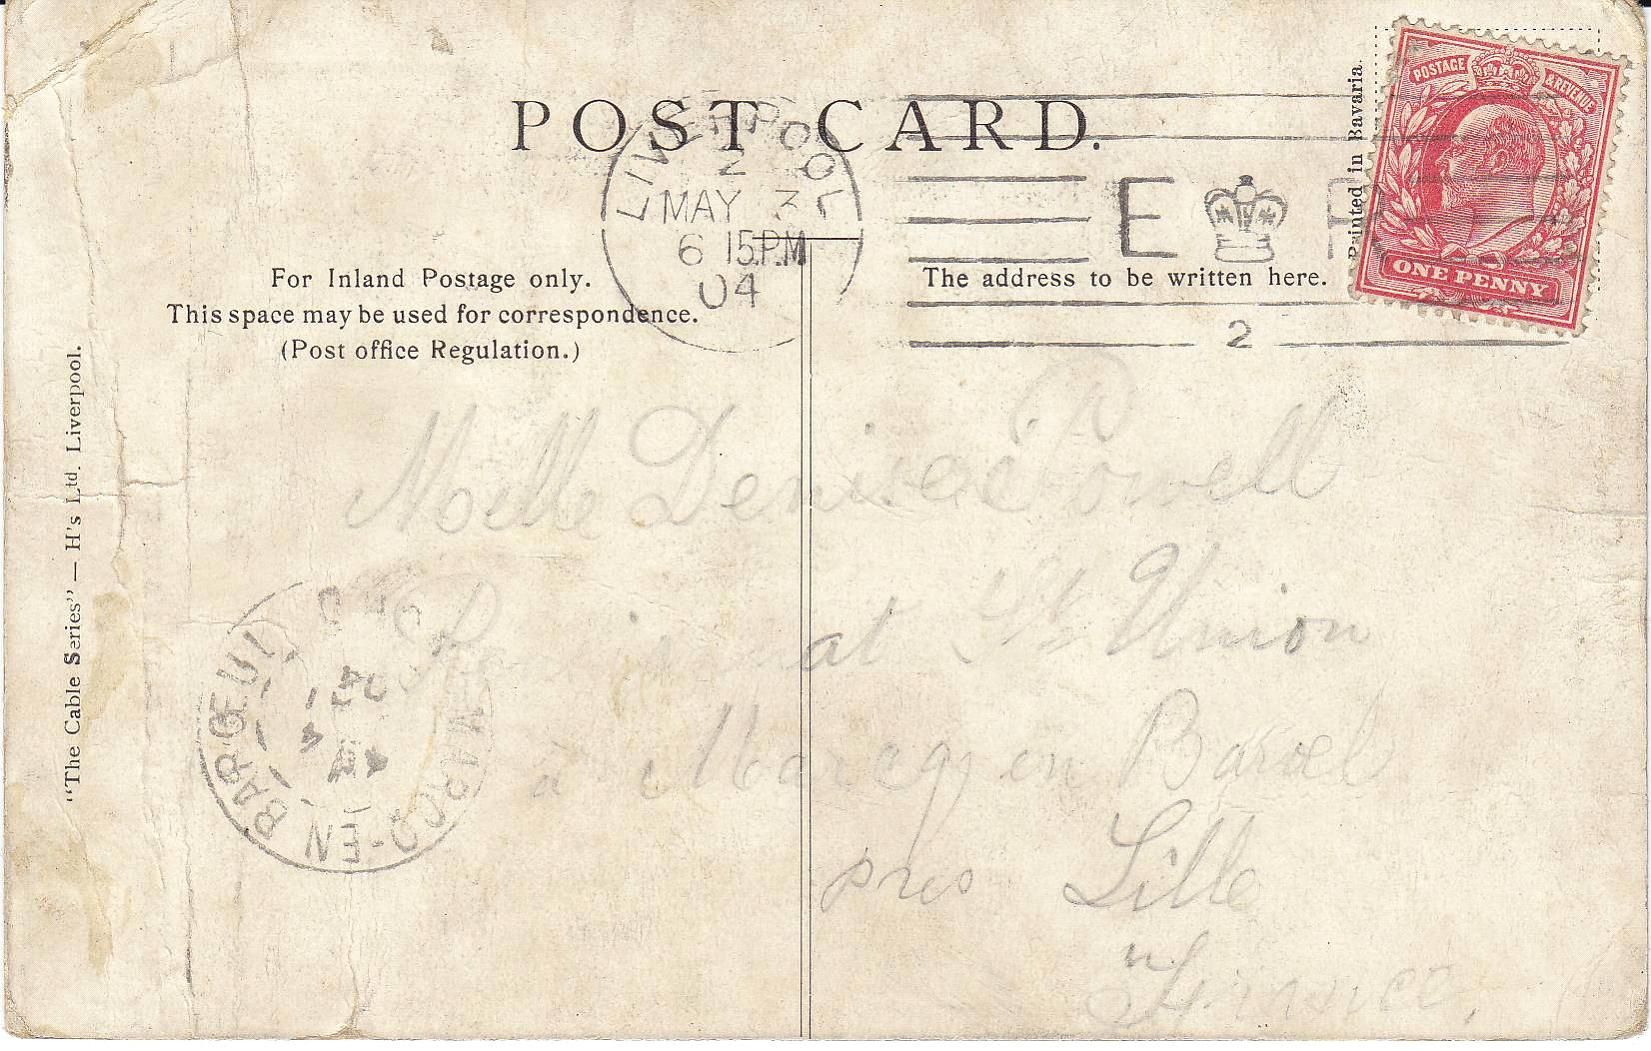 POST CARD.
POSTAGE & REVENUE
ONE PENNY
Printed in Bavaria.
LIVERPOOL
2
MAY 3
6 15 PM
04
E R
2
For Inland Postage only.
This space may be used for correspondence.
(Post office Regulation.)
The address to be written here.
"The Cable Series" — H's Ltd. Liverpool.
Melle Denise Powell
at St Union
à Marcq en Baroel
près Lille
France
MARCQ-EN-BARŒUL
04